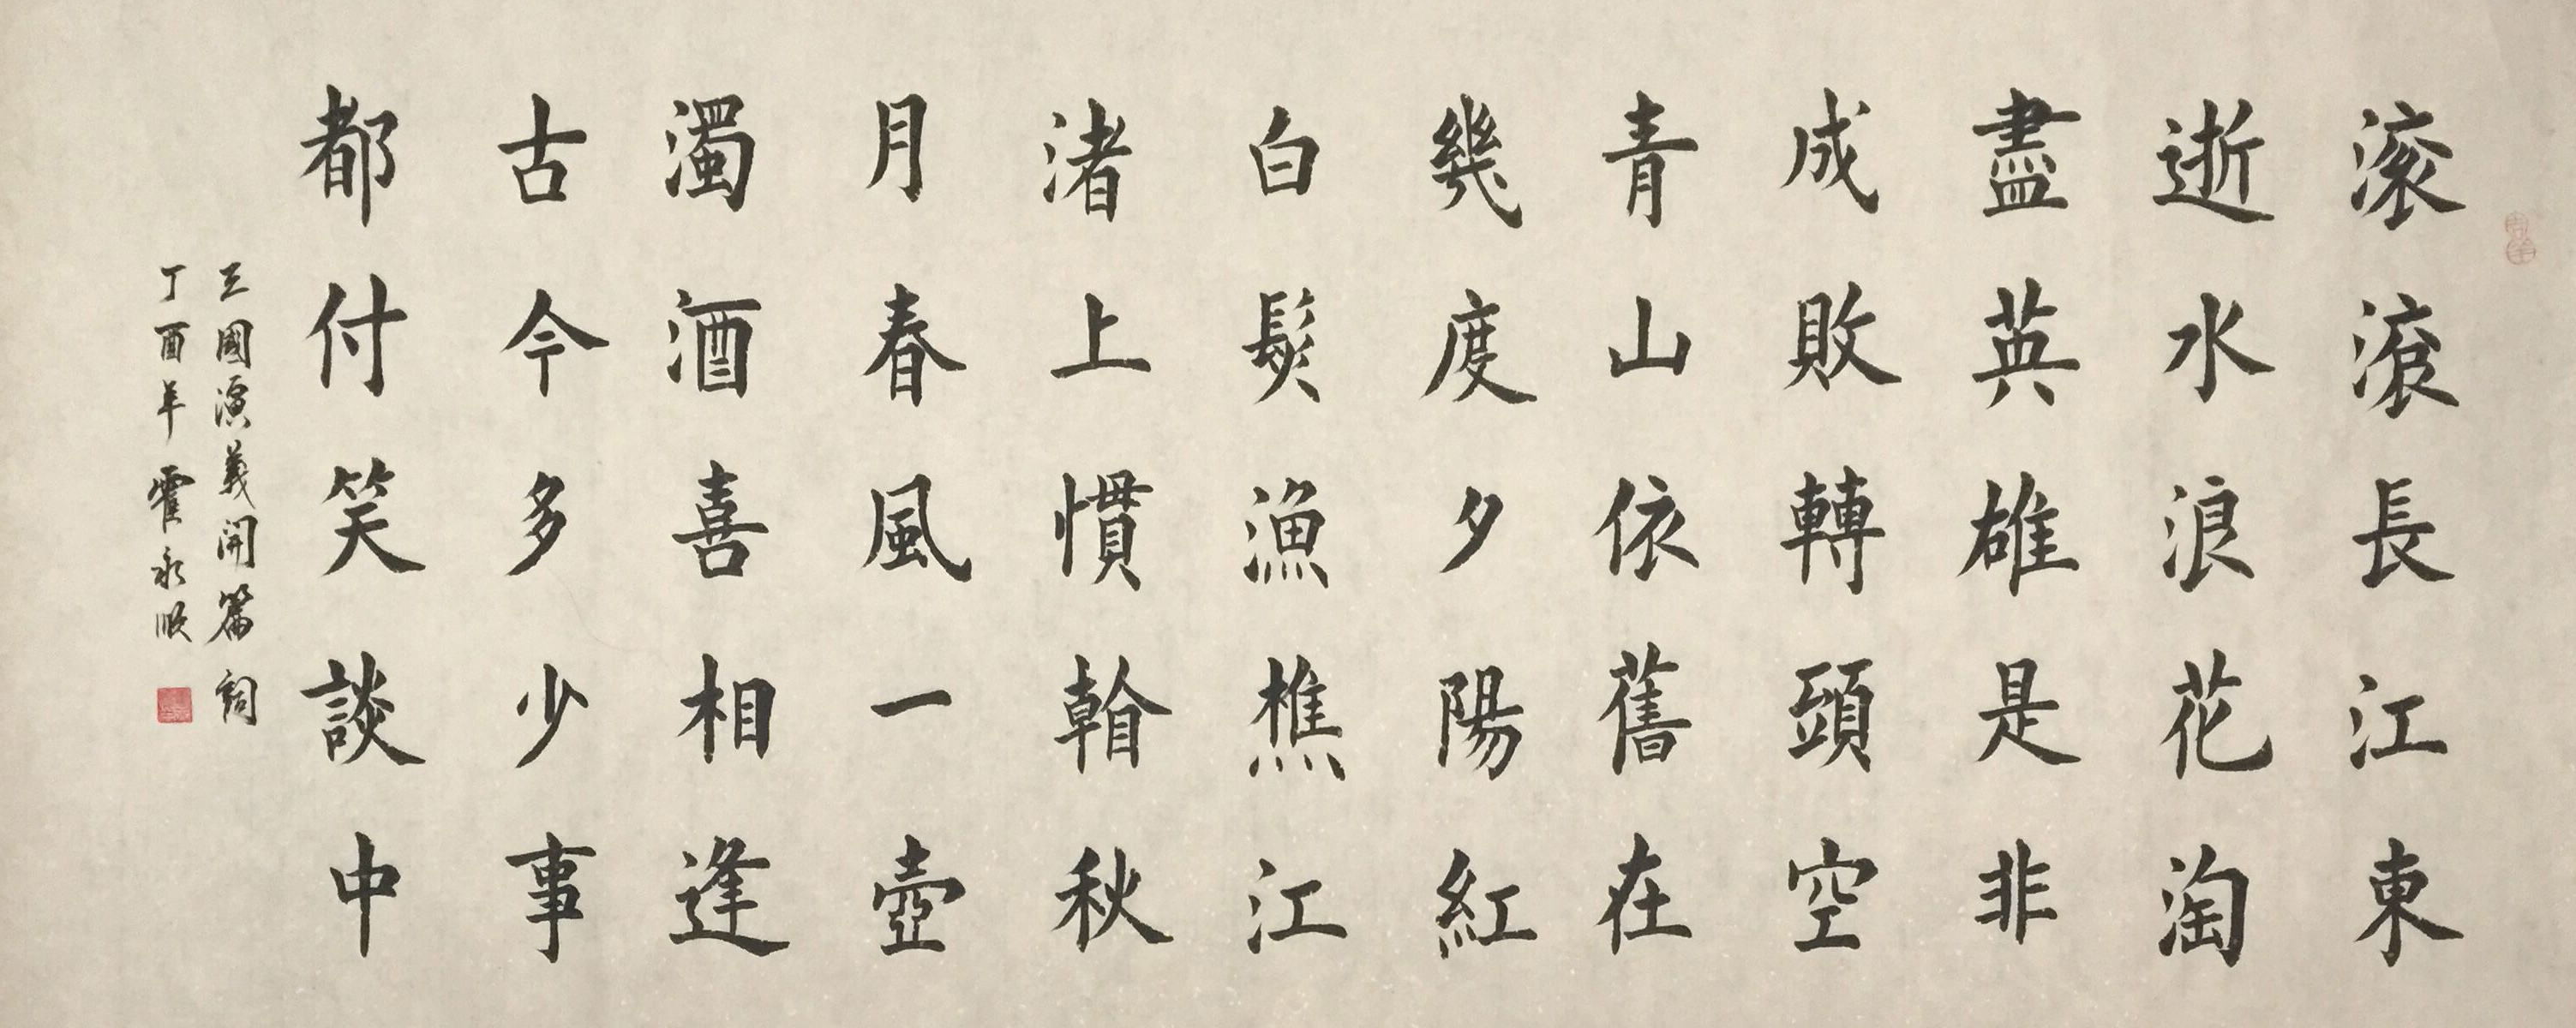 滚滾長江東
逝水浪花淘
盡英雄是非
成敗轉頭空
青山依舊在
幾度夕陽紅
白髮漁樵江
渚上慣看秋
月春風一壺
濁酒喜相逢
古今多少事
都付笑談中
三國演義開篇詞
丁酉年 霍永順